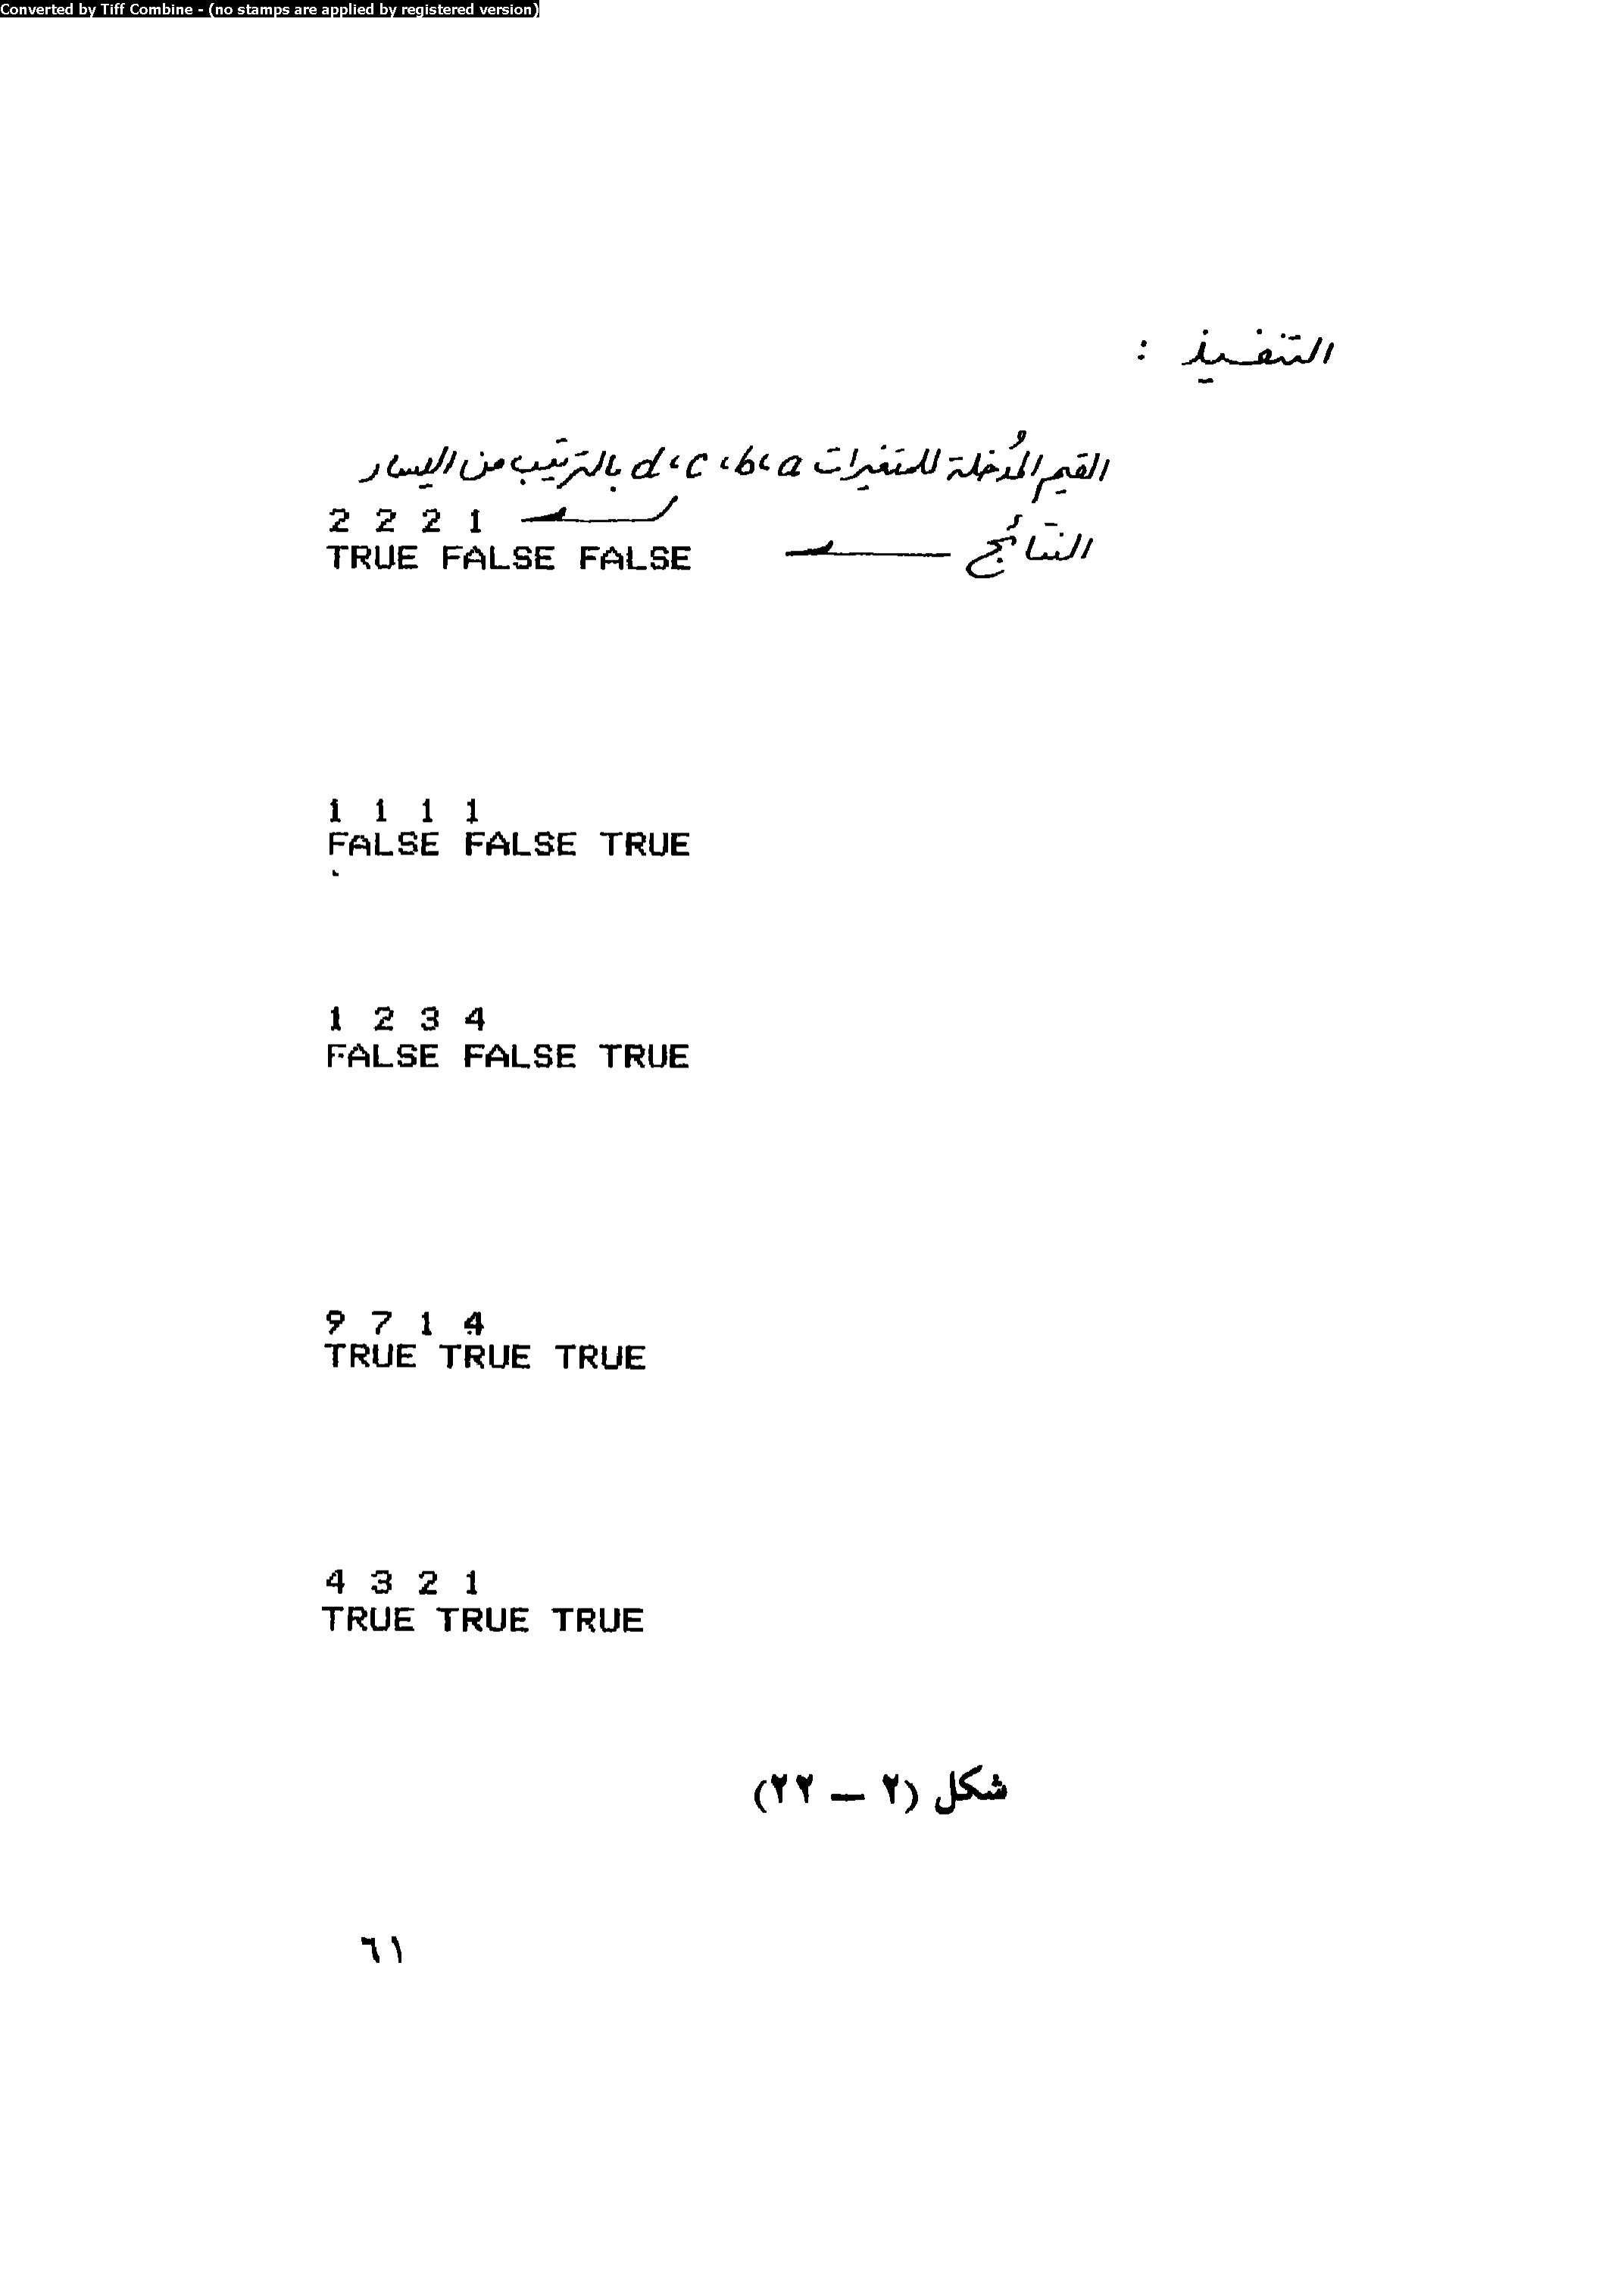 Converted by Tiff Combine - (no stamps are applied by registered version)
التنفيذ :
القيم المُدخلة للمتغيرات a ، b ، c ، d بالترتيب من اليسار
2 2 2 1
TRUE FALSE FALSE النتائج
1 1 1 1
FALSE FALSE TRUE
1 2 3 4
FALSE FALSE TRUE
9 7 1 4
TRUE TRUE TRUE
4 3 2 1
TRUE TRUE TRUE
شكل (٢ – ٢٢)
٦١